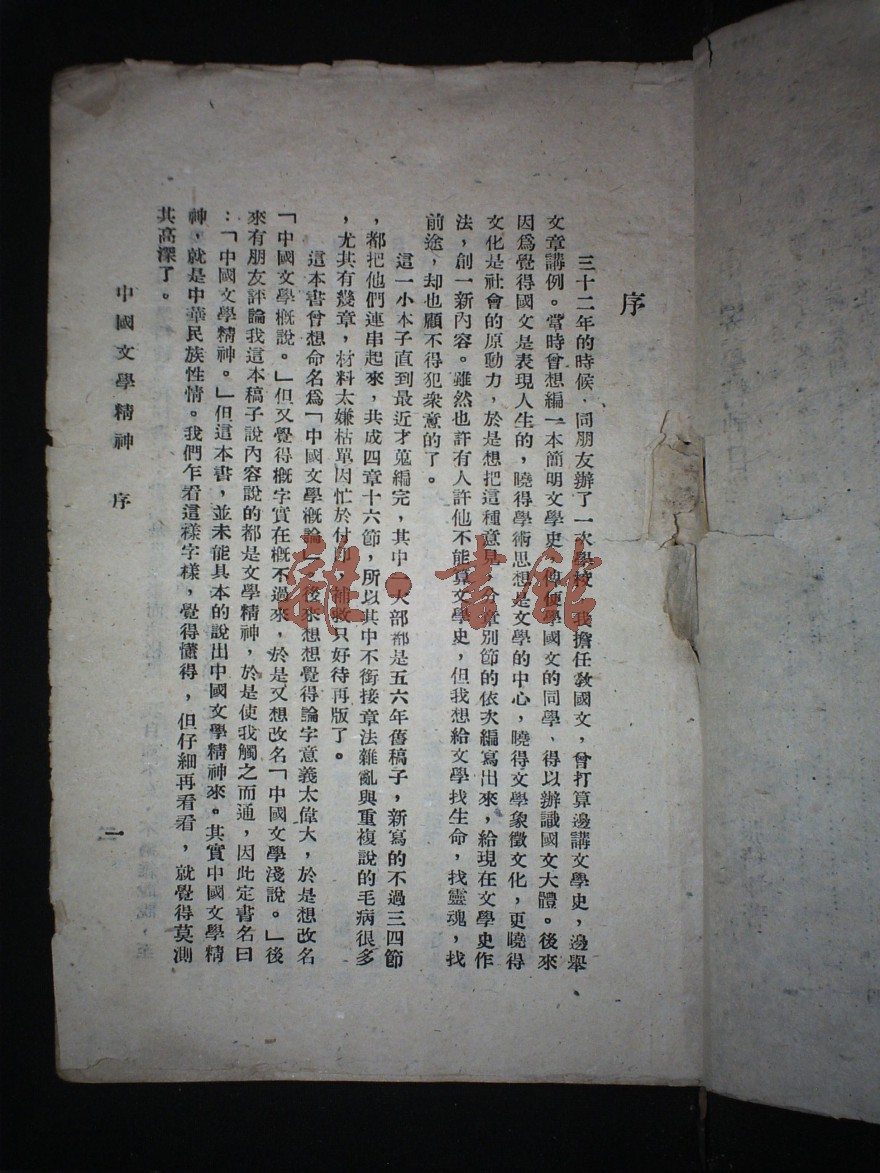 序
三十二年的時候，同朋友辦了一次學校，我擔任敎國文，曾打算邊講文學史，邊舉
文章講例。當時曾想編一本簡明文學史，俾使學國文的同學、得以辦識國文大體。後來
因爲覺得國文是表現人生的，曉得學術思想是文學的中心，曉得文學象徵文化，更曉得
文化是社會的原動力，於是想把這種意見，分章別節的依次編寫出來，給現在文學史作
法，創一新內容。雖然也許有人許他不能算文學史，但我想給文學找生命，找靈魂，找
前途，却也顧不得犯衆意的了。
這一小本子直到最近才蒐編完，其中一大部都是五六年舊稿子，新寫的不過三四節
，都把他們連串起來，共成四章十六節，所以其中不銜接章法雜亂與重複說的毛病很多
，尤其有幾章，材料太嫌枯單因忙於付印，補救只好待再版了。
這本書曾想命名爲「中國文學槪論」，後來想想覺得論字意義太偉大，於是想改名
「中國文學槪說。」但又覺得槪字實在槪不過來，於是又想改名「中國文學淺說。」後
來有朋友評論我這本稿子說內容說的都是文學精神，於是使我觸之而通，因此定書名曰
：「中國文學精神。」但這本書，並未能具本的說出中國文學精神來。其實中國文學精
神，就是中華民族性情。我們乍看這樣字樣，覺得懂得，但仔細再看看，就覺得莫測
其高深了。
中國文學精神　序
一
雜·書館